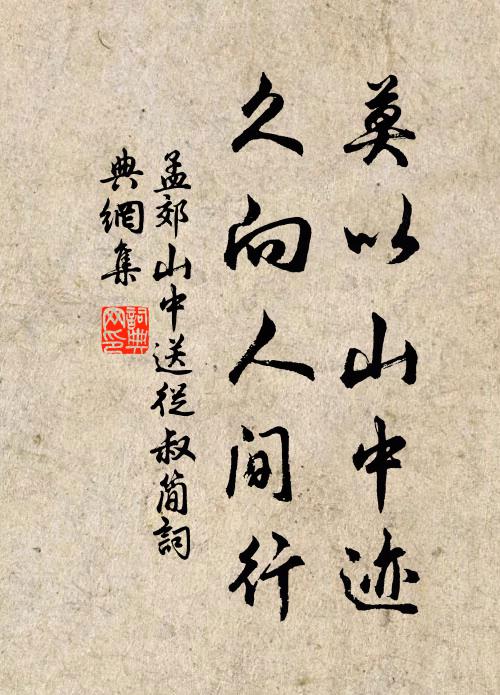 莫以山中迹
久向人间行
孟郊山中送從叔简詞
典網集
詞典
网印